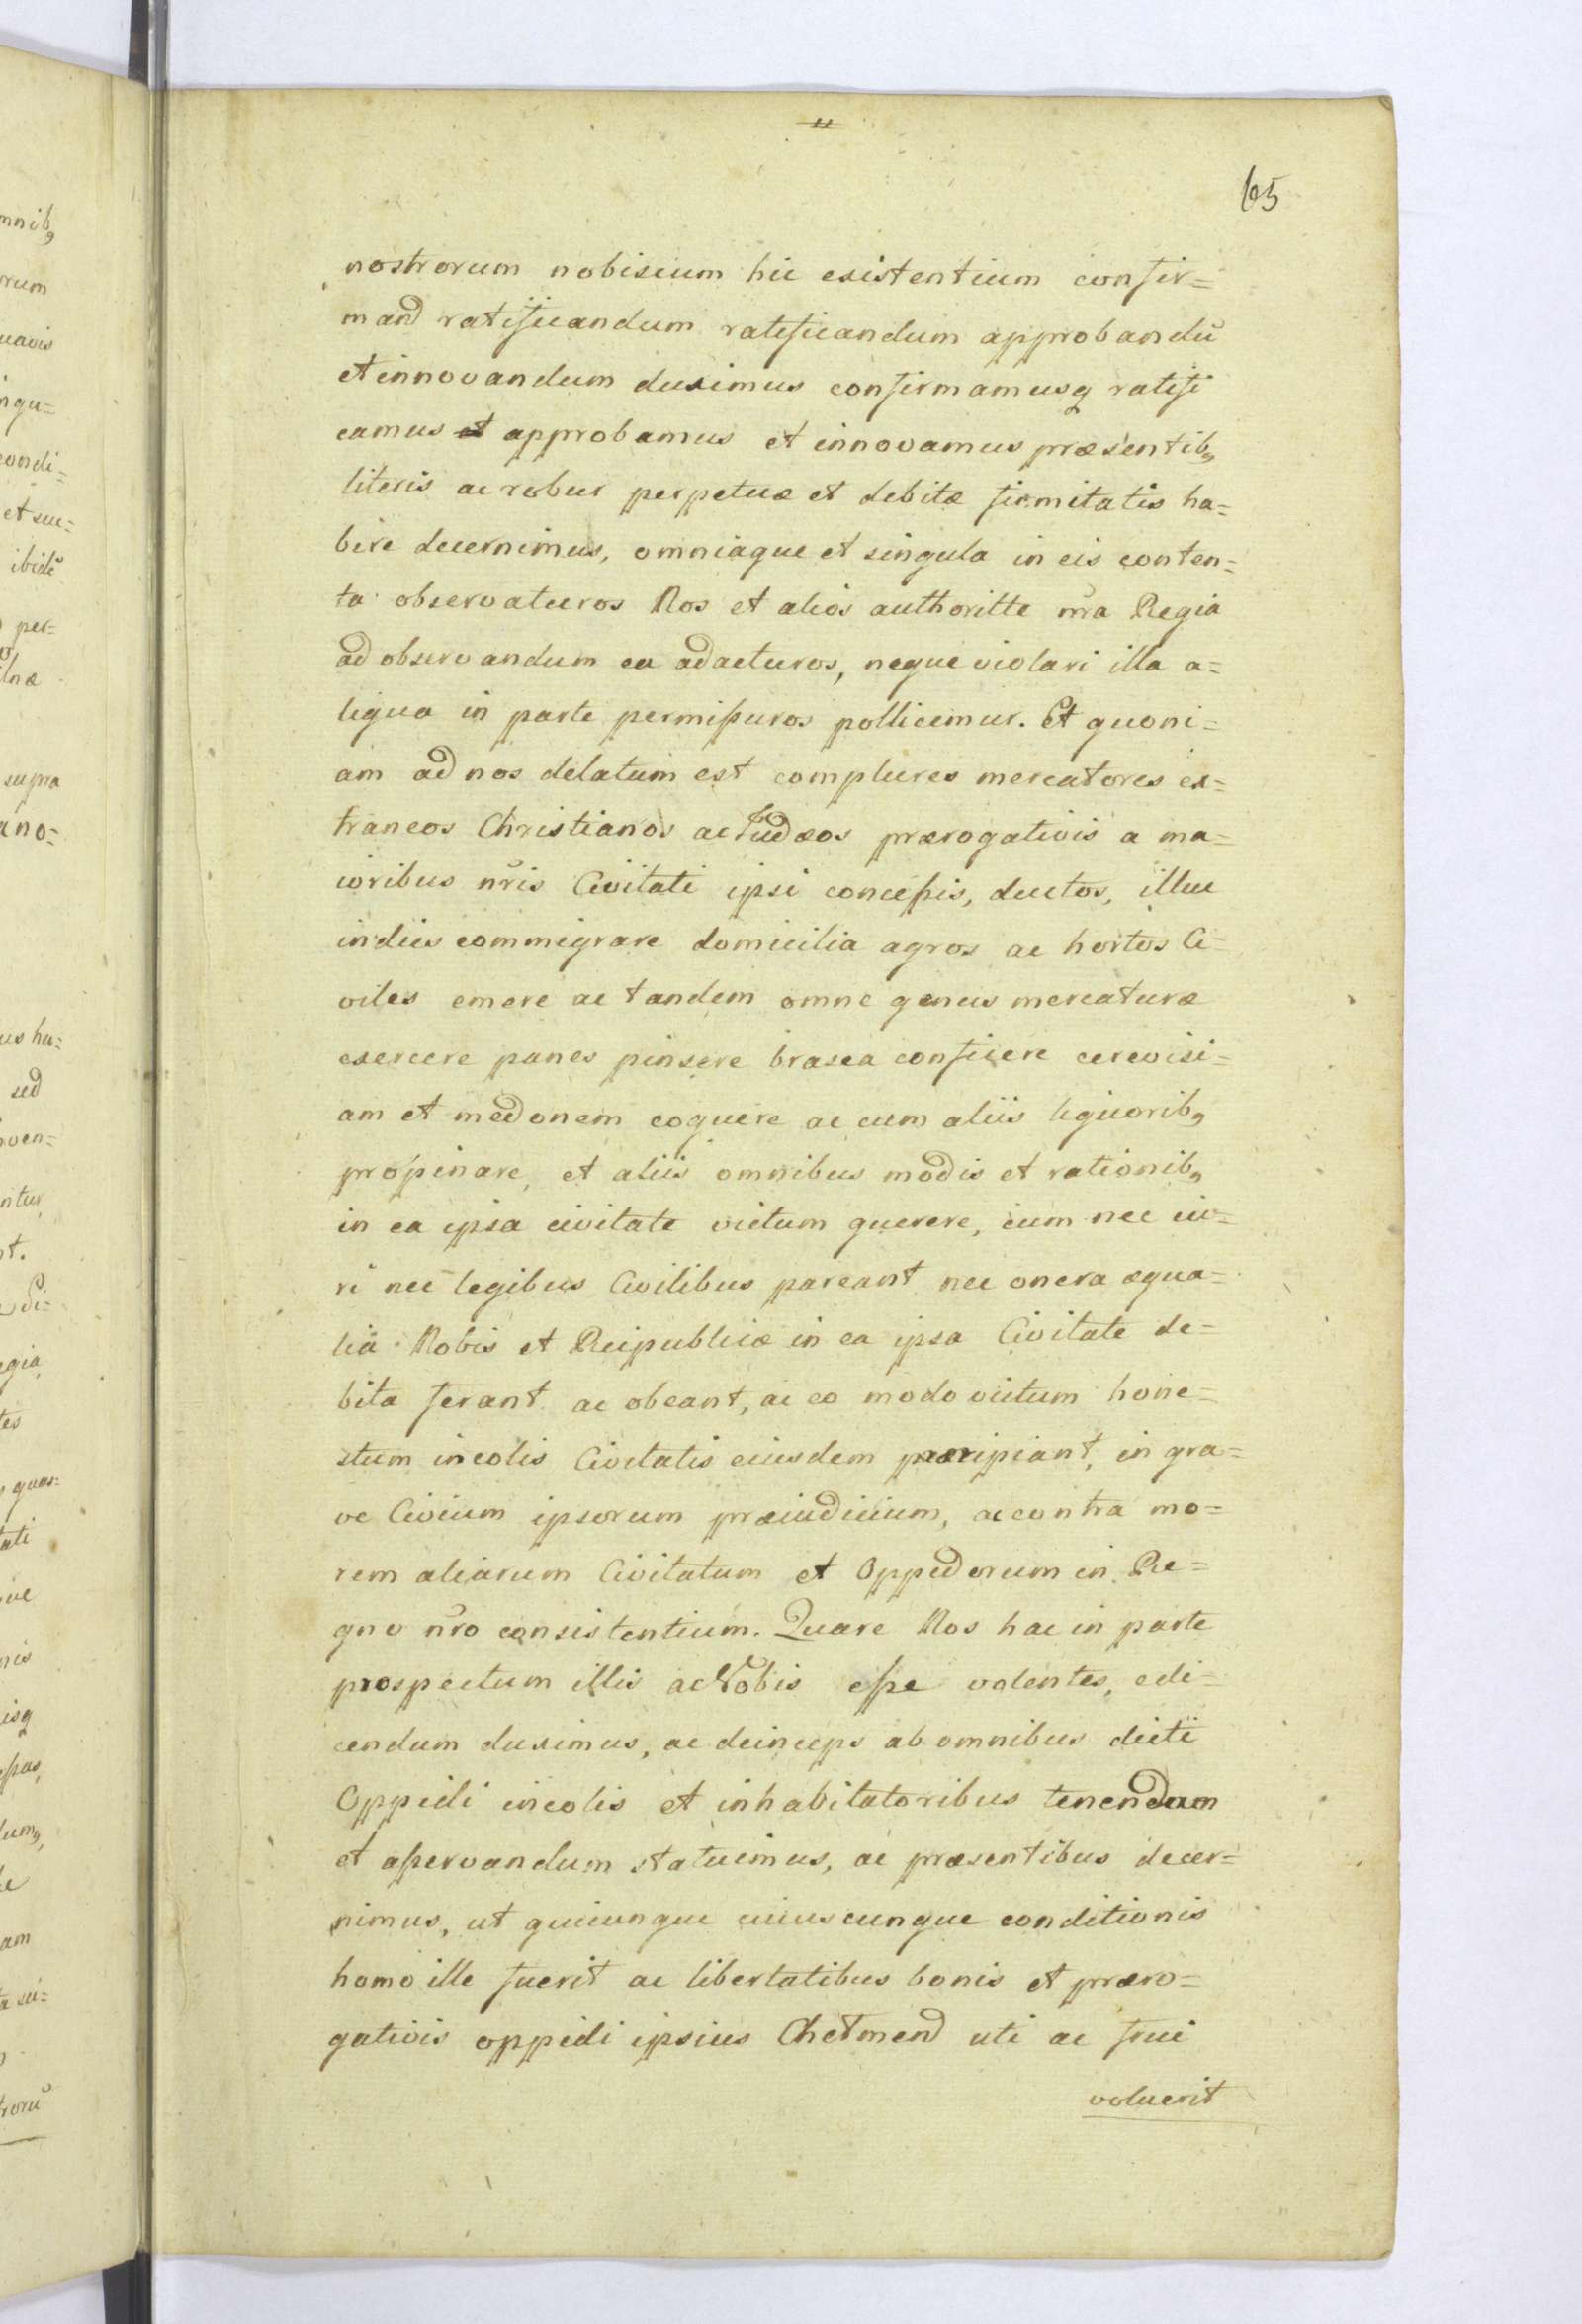 65
nostrorum nobiscum hic existentium confir=
mand ratificandum ratificandum approbandū
et innovandum duximus confirmamusq ratifi
camus et approbamus et innovamus præsentib9
literis ac robur perpetuæ et debitæ firmitatis ha=
bere decernimus, omniaque et singula in eis conten=
ta observaturos Nos et alios authoritte nra Regia
ad observandum ea adacturos, neque violari illa a=
liqua in parte permissuros pollicemur. Et quoni=
am ad nos delatum est complures mercatores ex=
traneos Christianos ac Judæos prærogativis a ma=
ioribus nris Civitati ipsi concessis, ductos, illuc
indies commigrare domicilia agros ac hortos Ci=
viles emere ac tandem omne genus mercaturæ
exercere panes pinsere brasea conficere cerevisi=
am et medonem coquere ac cum aliis liquorib9
propinare, et aliis omnibus modis et rationib9
in ea ipsa civitate victum querere, cum nec iu=
ri nec legibus Civilibus pareant nec onera æqua=
lia Nobis et Reipublicæ in ea ipsa Civitate de=
bita ferant ac obeant, ac eo modo victum hone=
stum incolis Civitatis eiusdem præripiant, in gra=
ve Civium ipsorum præiudicium, ac contra mo=
rem aliarum Civitatum et Oppidorum in Re=
gno nro consistentium. Quare Nos hac in parte
prospectum illis ac Nobis esse volentes, edi=
cendum duximus, ac deinceps ab omnibus dicti
Oppidi incolis et inhabitatoribus tenendum
et asservandum statuimus, ac præsentibus decer=
nimus, ut quicunque cuiuscunque conditionis
homo ille fuerit ac libertatibus bonis et præro=
gativis oppidi ipsius Chetmend uti ac frui
voluerit